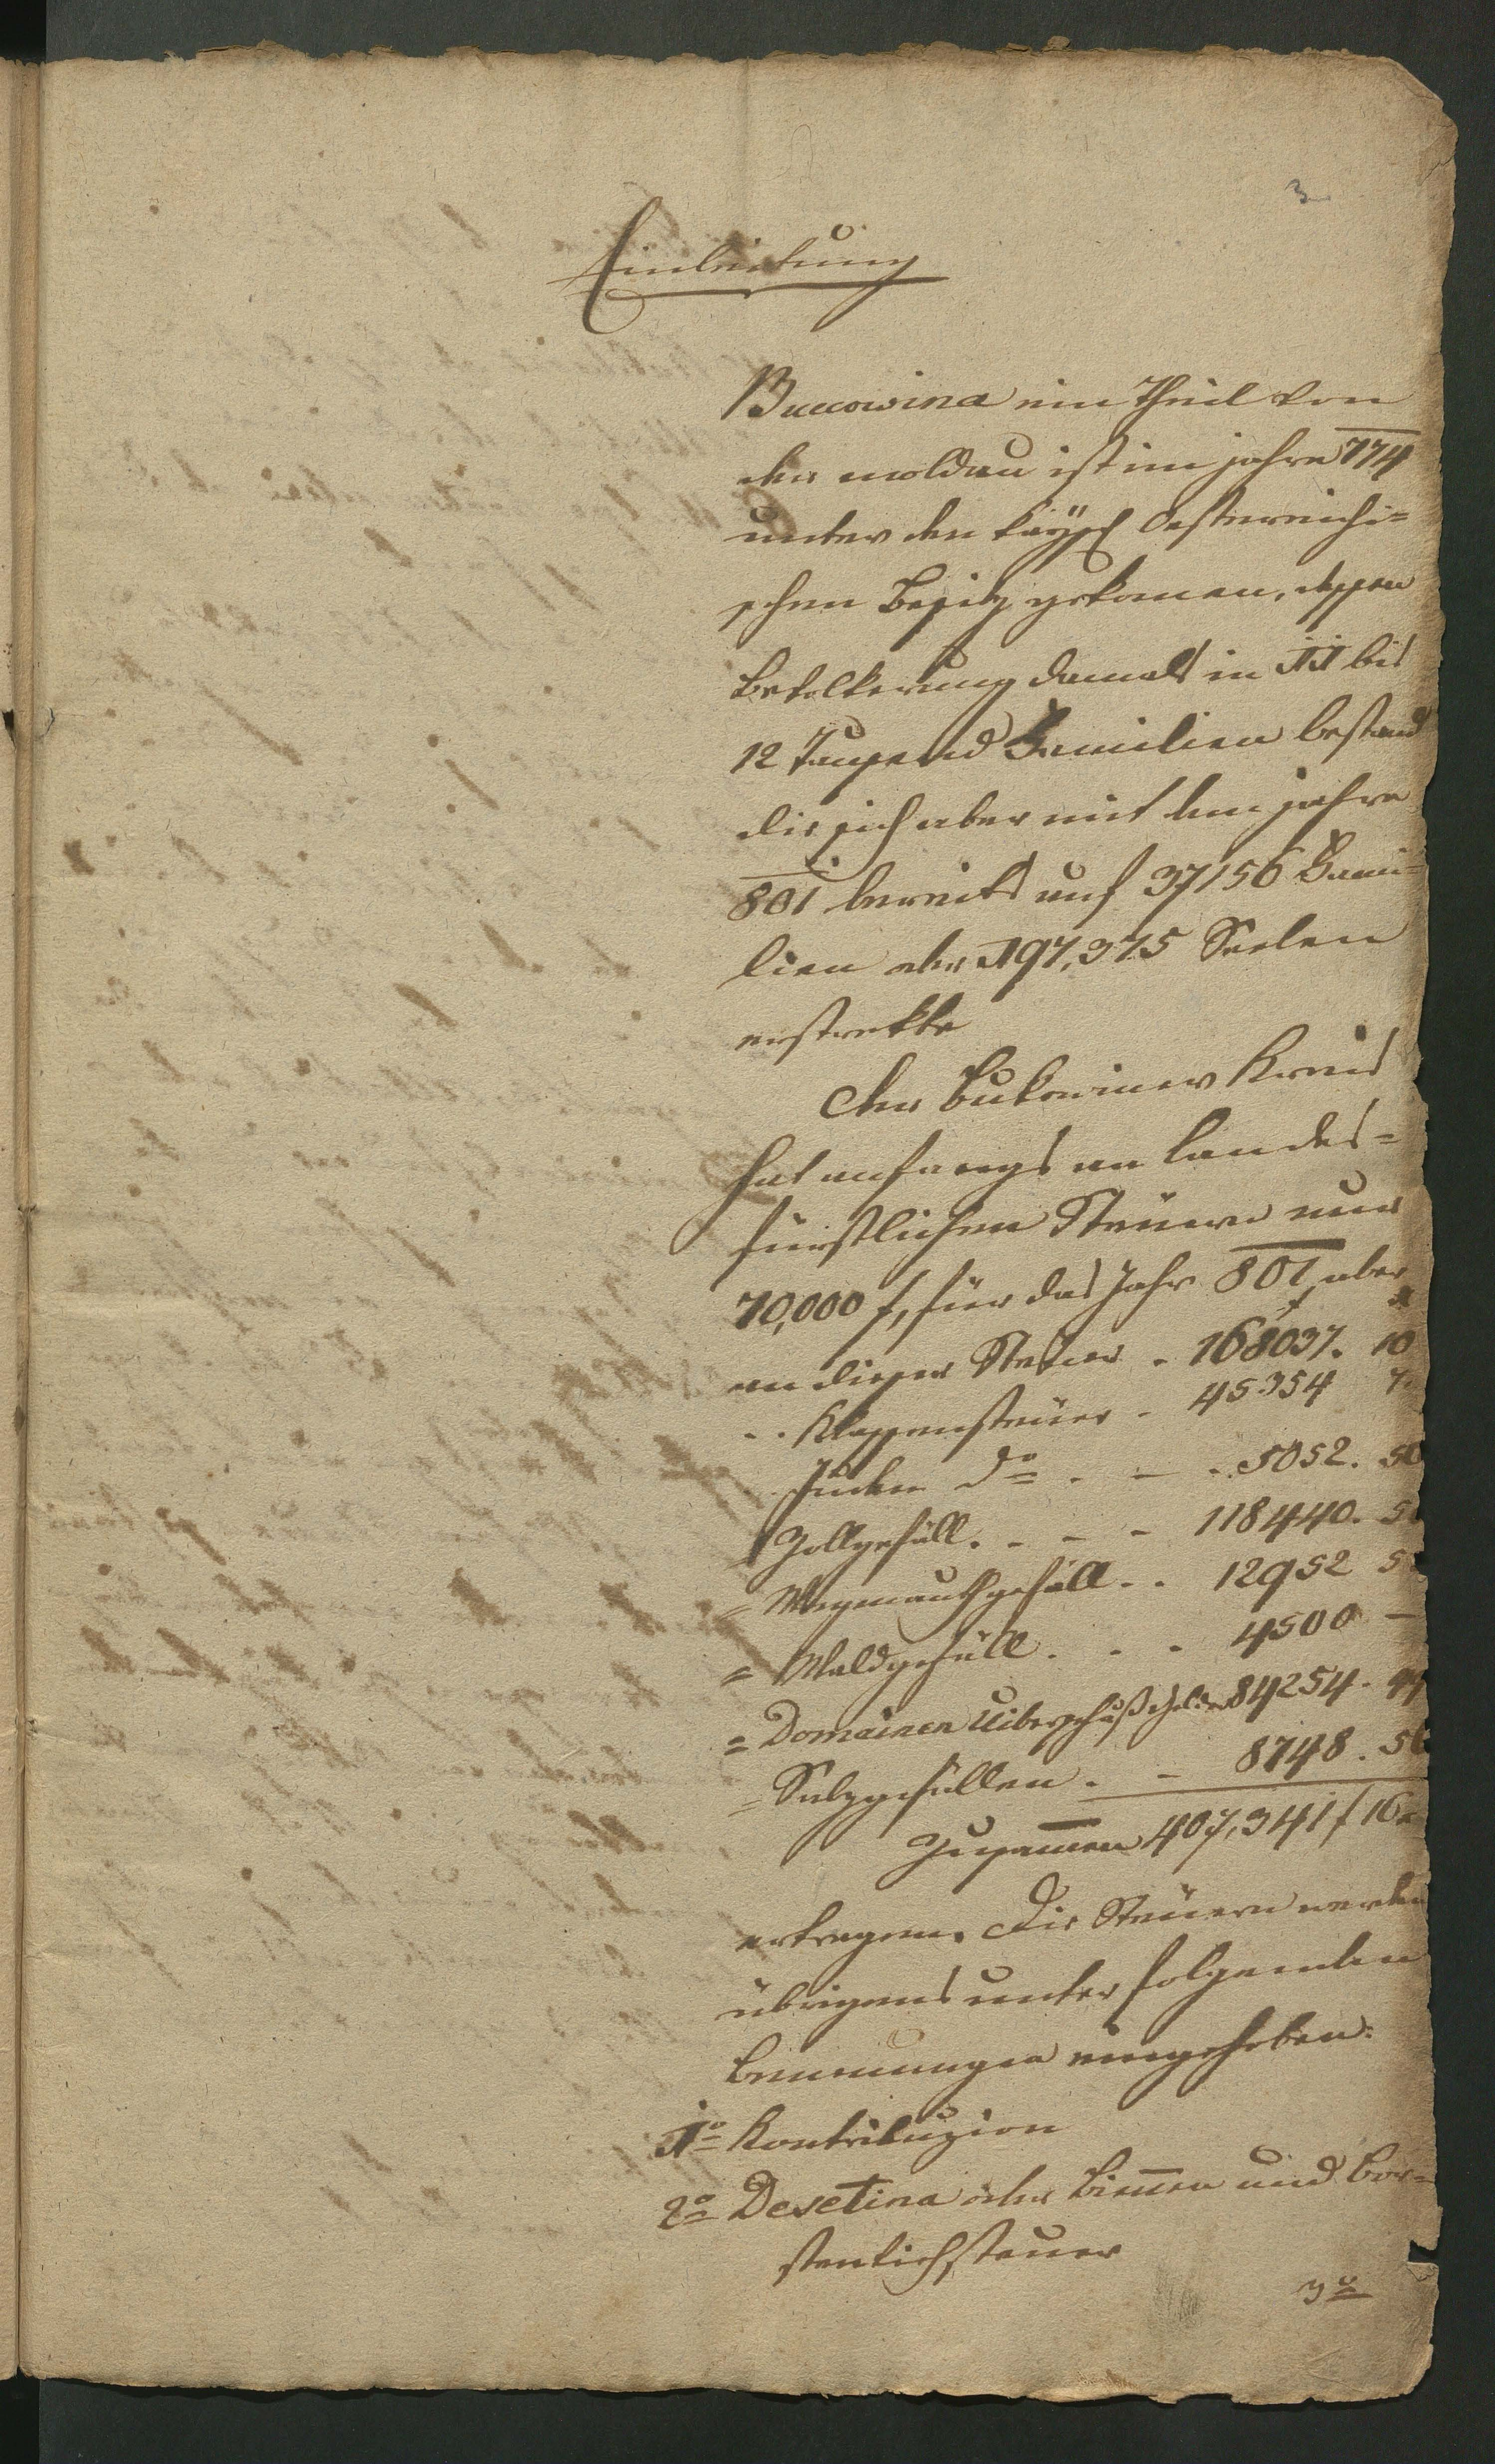 3
Einleitung
Buccowina ein Theil von
der moldau ist im jahre 774
unter den kaÿsl Oesterreichi=
schen Besitz gekomen, dessen
Bevolkerung damals in 11 bis
12 Tausend Familien bestand
die sich aber mit dem jahre
801 bereits auf 37156 Fami=
lien oder 197,375 Seelen
erstrekte
Der Bukowiner Kreis
hat anfangs an Landes=
fürstlichen Steuern nur
70,000 f, für das Jahr 801 aber
an dieser Steuer . 168037. 10
. . Klassensteuer . 45354 7.
Juden do . — . 5052. 50
Zollgefäll . . - - 118440. 5
= Wegmauthgefäll . . 12952 5
= Waldgefäll . . . 4500 —
= Domainen Uiberschuß Gelder 84254. 44
= Salzgefällen . - 8748. 5
Zusamen 407,341 f 16
ertragen. Die Steuern werden
übrigens unter folgenden
Benenungen eingehoben:
1o Kontribuzion
2o Desetina oder Bienen und Bor=
stenviehsteuer
3o